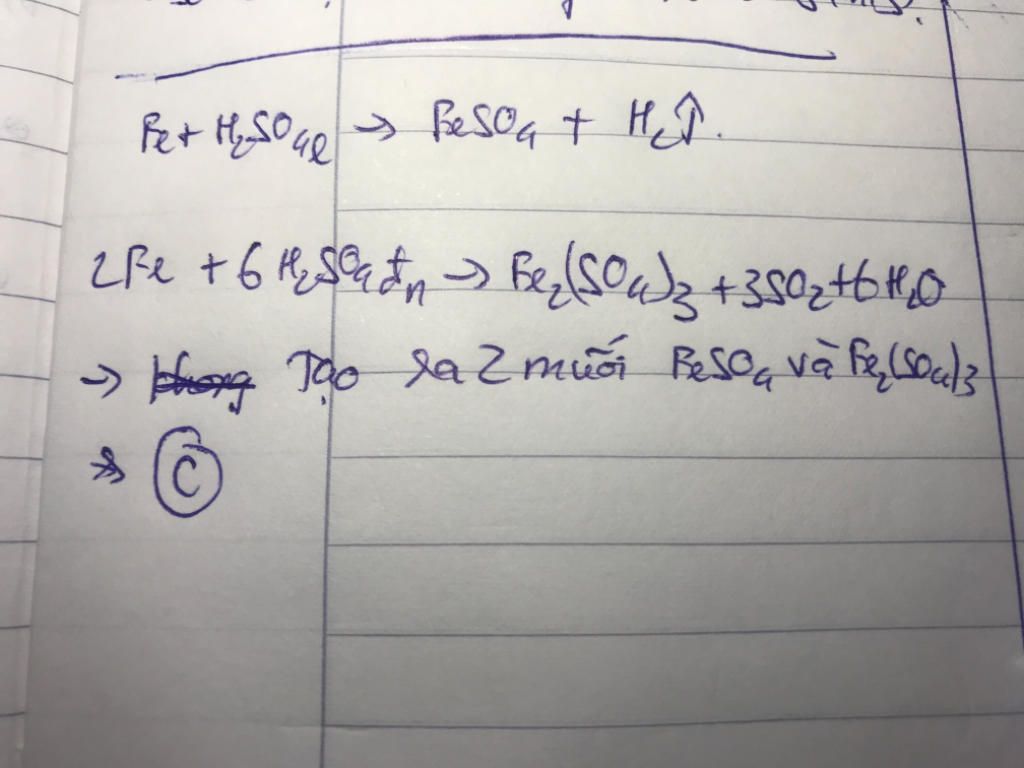 Fe + H₂SO₄ l → FeSO₄ + H₂↑.
2Fe + 6 H₂SO₄ đ,n → Fe₂(SO₄)₃ + 3SO₂ + 6H₂O
→ Tạo ra 2 muối FeSO₄ và Fe₂(SO₄)₃
→ C